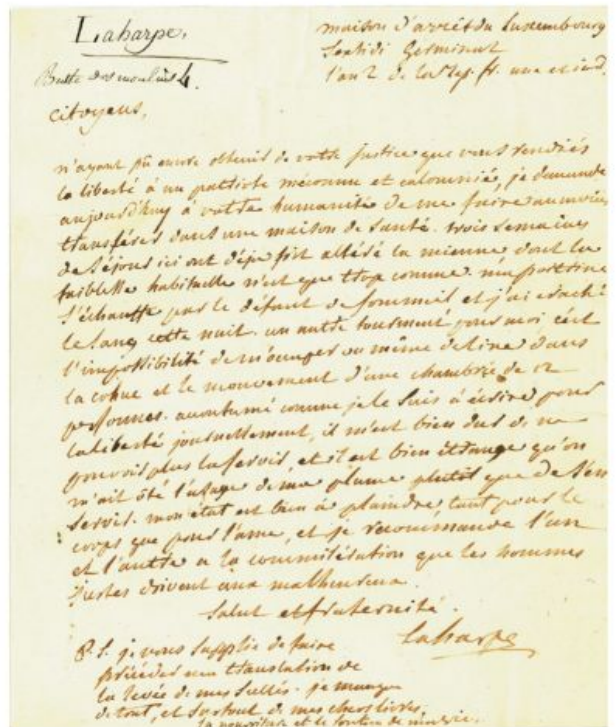 Laharpe.
maison d'arrêt du Luxembourg
Sextidi Germinal
l'an 2 de la Rep. fr. une et ind.
Butte des moulins 4.
citoyens,
n'ayant pu encore obtenir de votre justice que vous rendiés
la liberté à un patriote méconnu et calomnié, je demande
aujourd'huy à votre humanité de me faire au moins
transférer dans une maison de santé. trois semaines
de séjour ici ont déja fort altéré la mienne dont la
faiblesse habituelle n'est que trop connue. ma poitrine
s'échauffe par le défaut de sommeil et j'ai craché
le sang cette nuit. un autre tourment pour moi c'est
l'impossibilité de m'occuper ou même de lire dans
la cohue et le mouvement d'une chambrée de 12
personnes. accoutumé comme je le suis à écrire pour
la liberté journellement, il m'est bien dur de ne
pouvoir plus la servir, et il est bien étrange qu'on
m'ait ôté l'usage de ma plume plutôt que de s'en
servir. mon état est bien à plaindre tant pour le
corps que pour l'ame, et je recommande l'un
et l'autre a la commisération que les hommes
justes doivent aux malheureux.
Salut et fraternité.
Laharpe
P.S. je vous supplie de faire
précéder ma translation de
la levée de mes scellés. je manque
de tout, et surtout de mes chers livres,
la nourriture et le soutien de ma vie.